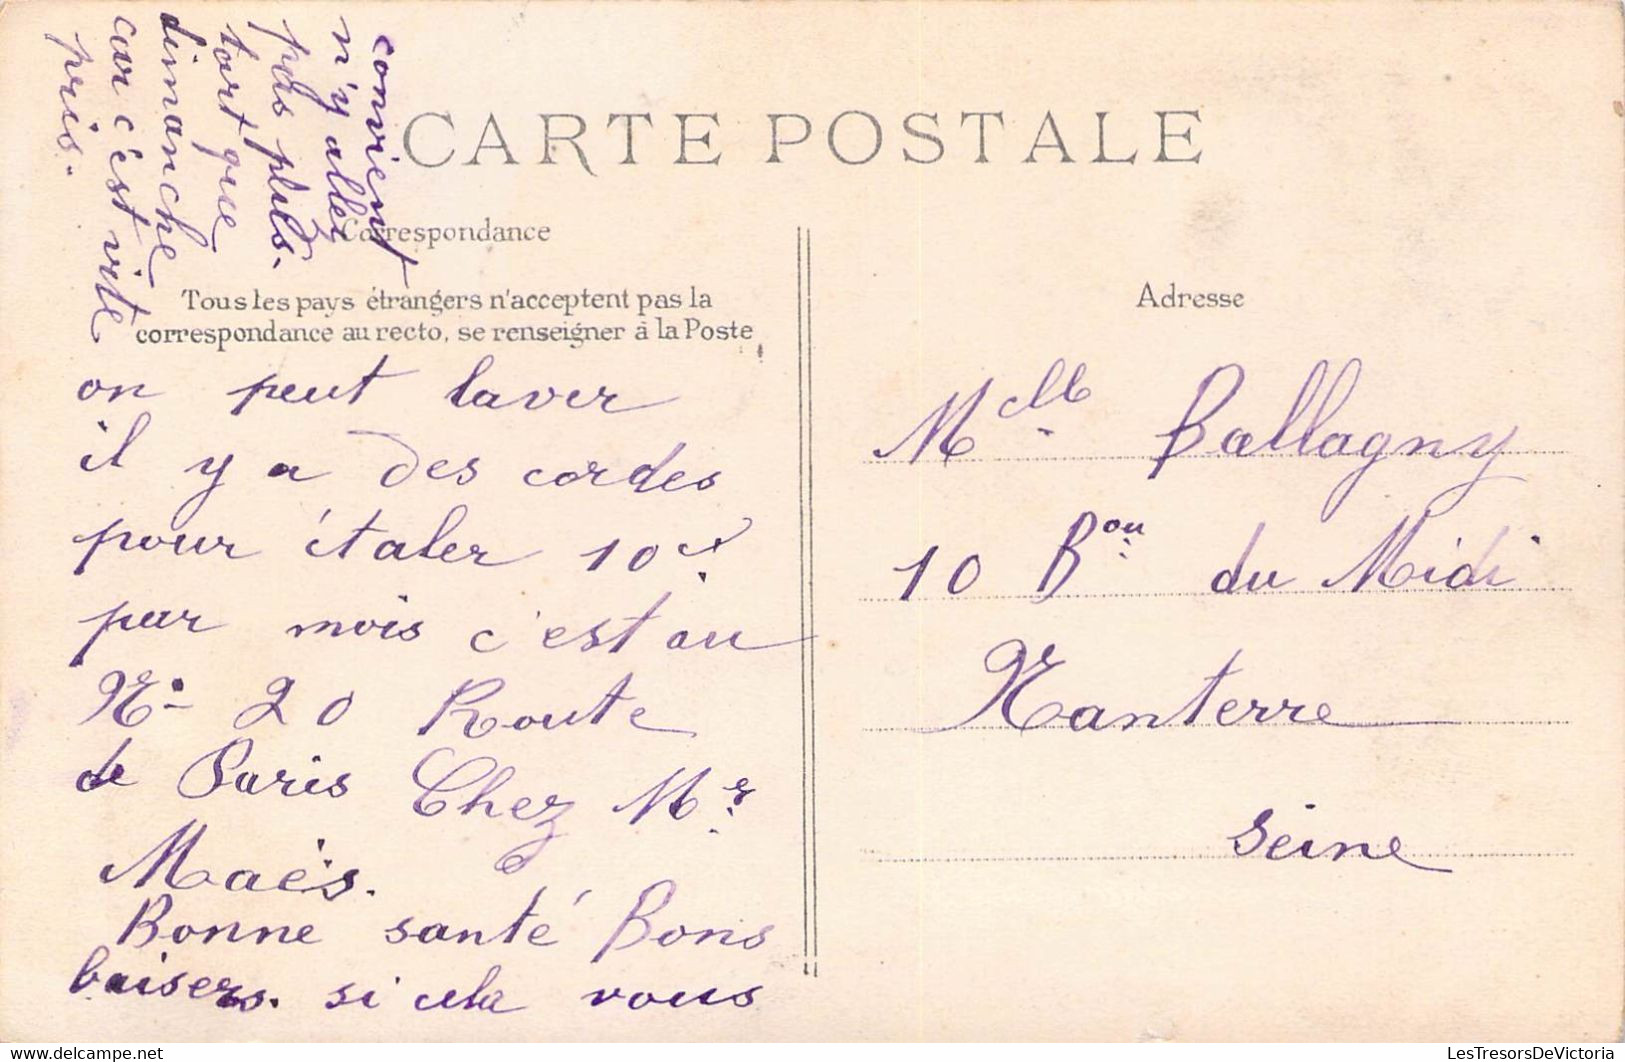 CARTE POSTALE
Correspondance
Tous les pays étrangers n'acceptent pas la
correspondance au recto, se renseigner à la Poste
on peut laver
il y a des cordes
pour étaler 10
par mois c'est au
No 20 Route
de Paris Chez Mr
Maës.
Bonne santé Bons
baisers. si cela vous
convient
n'y allez
pas plus.
tart que
dimanche
car c'est vite
pris.
Adresse
Melle Ballagny
10 Bou du Midi
Nanterre
Seine
delcampe.net
LesTresorsDeVictoria